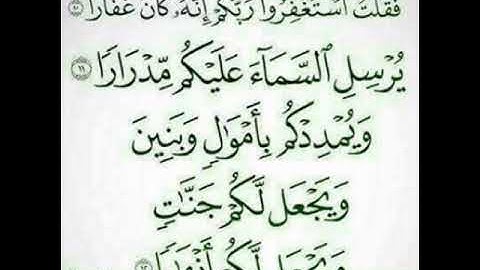 فَقُلْتُ ٱسْتَغْفِرُوا۟ رَبَّكُمْ إِنَّهُۥ كَانَ غَفَّارًا ١٠
يُرْسِلِ ٱلسَّمَآءَ عَلَيْكُم مِّدْرَارًا ١١
وَيُمْدِدْكُم بِأَمْوَٰلٍ وَبَنِينَ
وَيَجْعَل لَّكُمْ جَنَّـٰتٍ
وَيَجْعَل لَّكُمْ أَنْهَـٰرًا ١٢